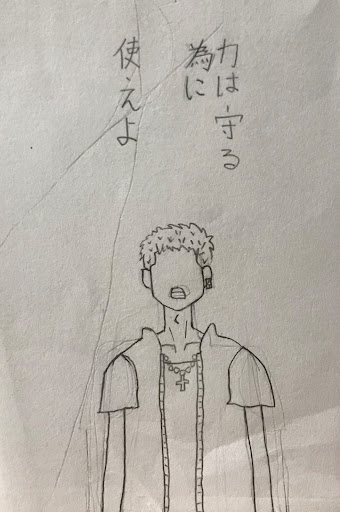 力は守る
為に
使えよ